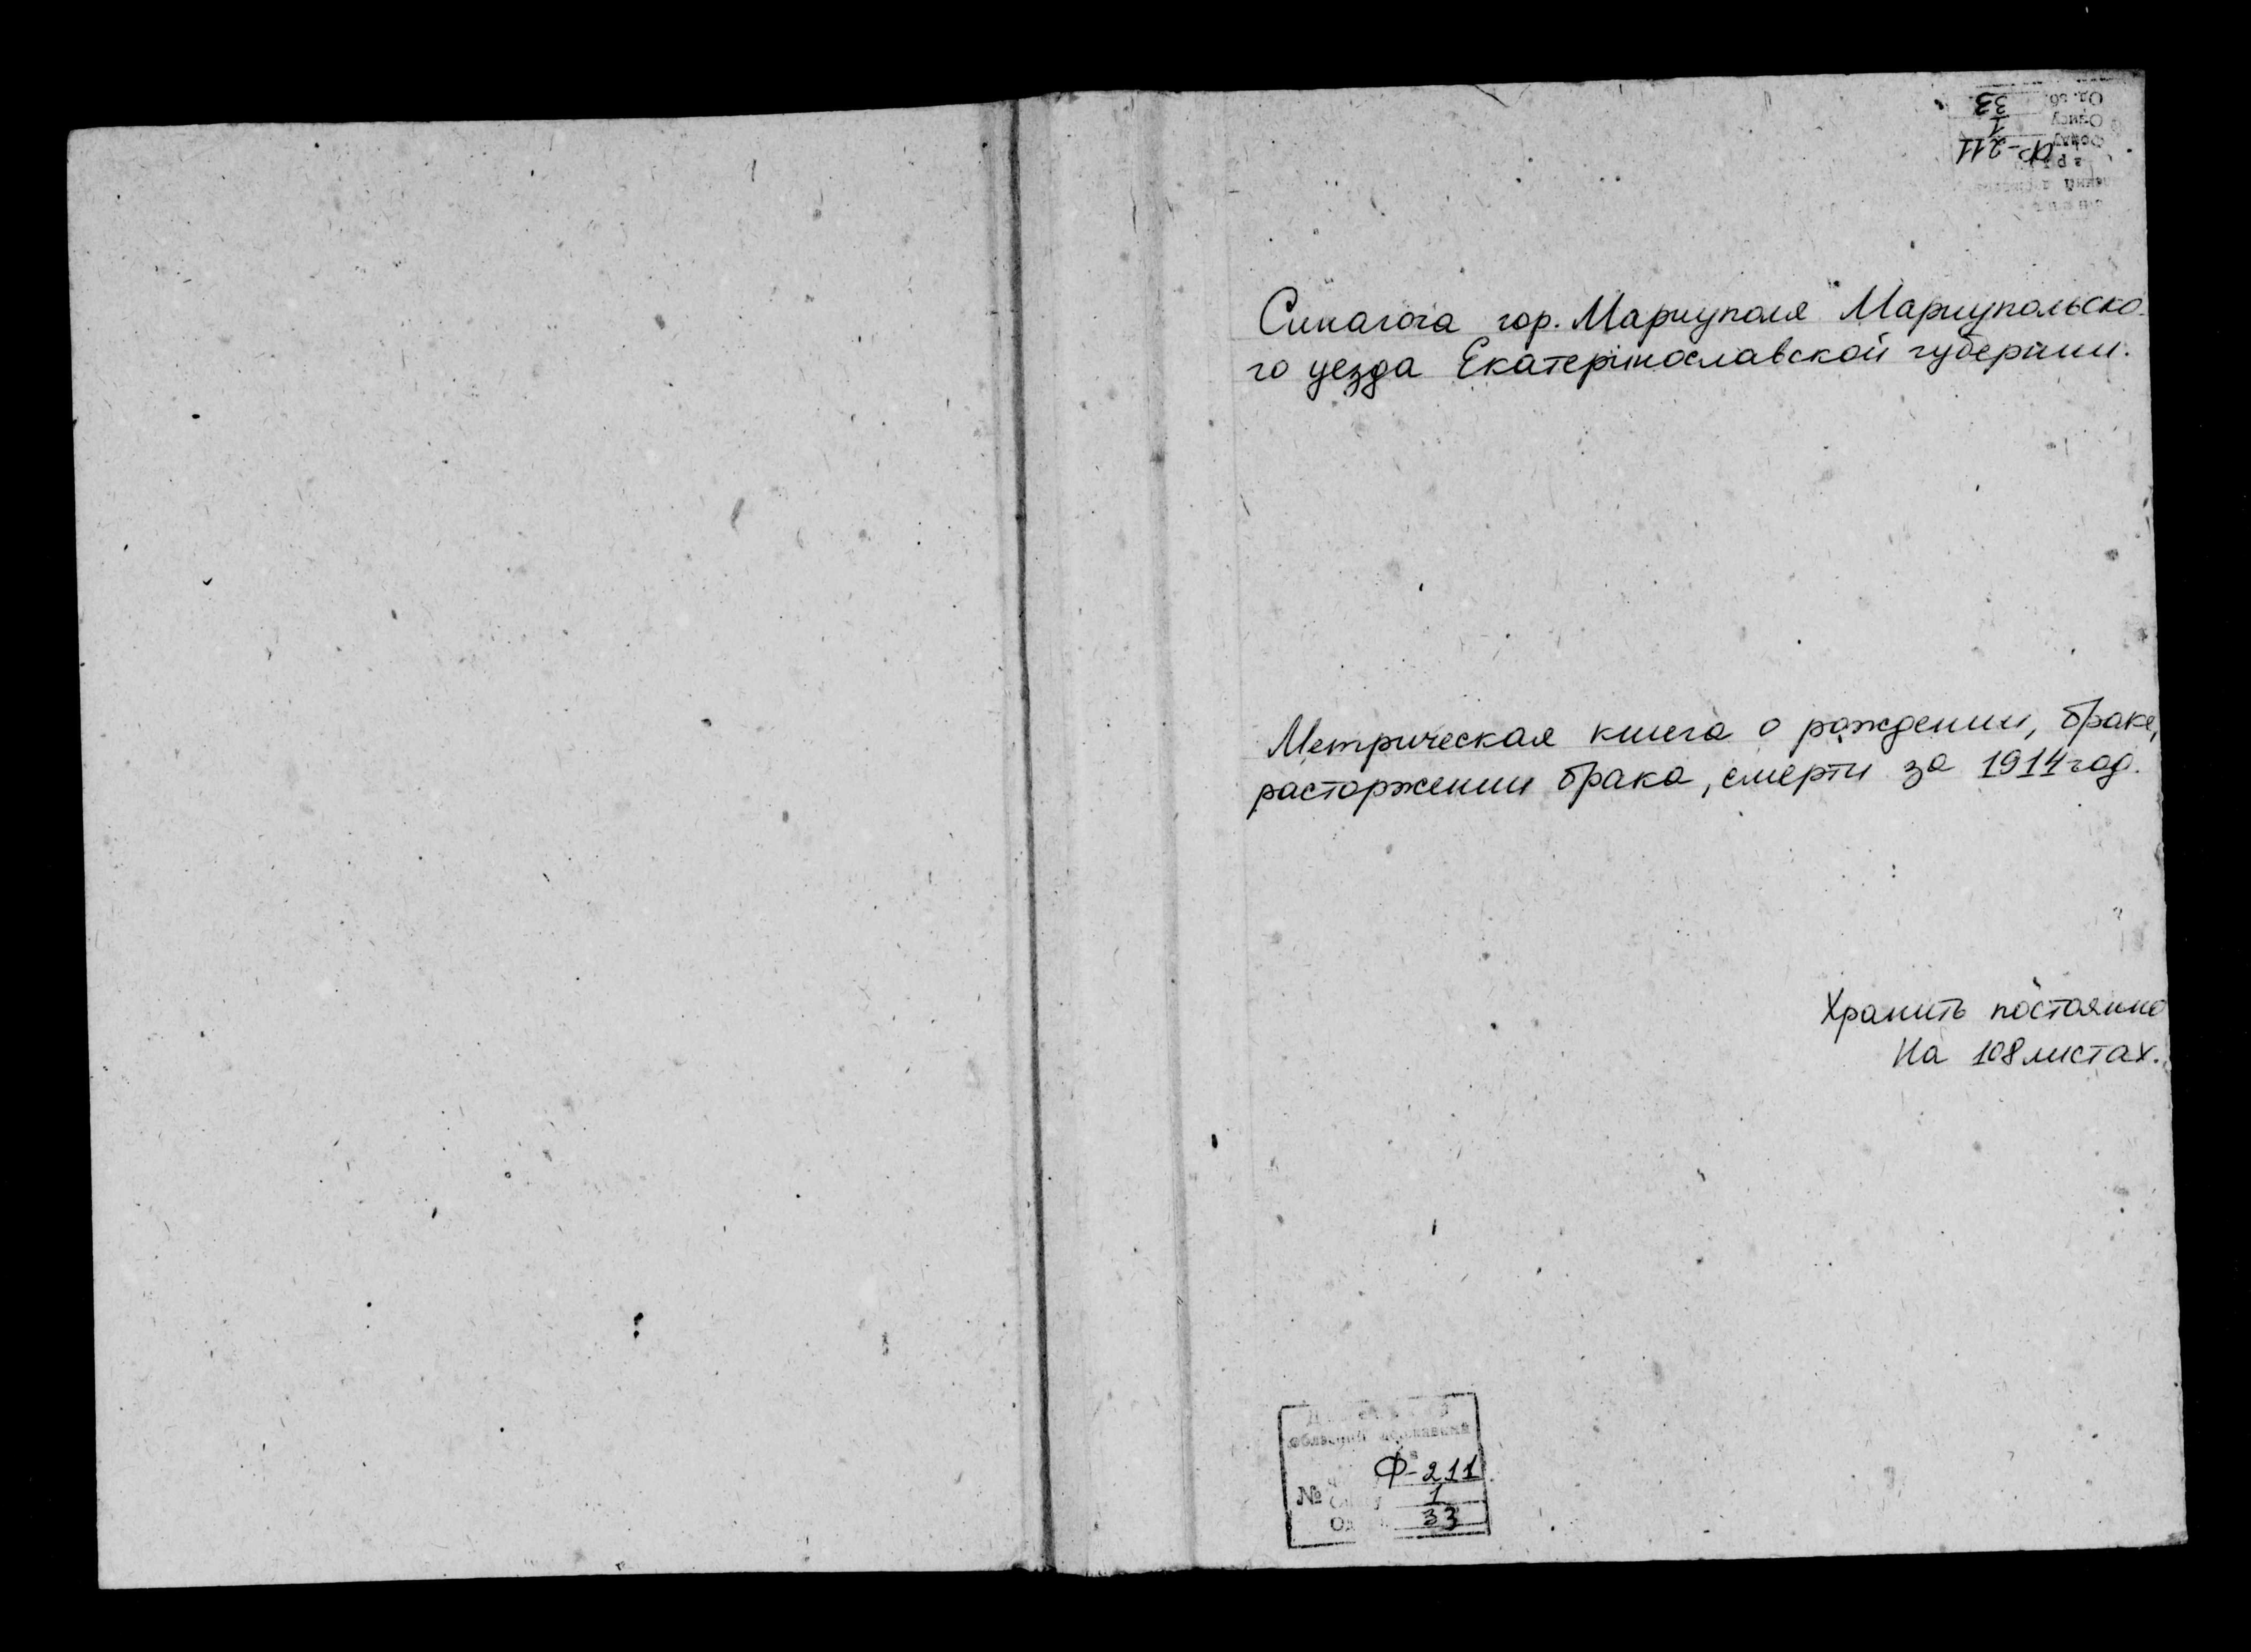 Ф-211
1
33
Синагога гор. Мариуполя Мариупольско-
го уезда Екатеринославской губернии.
Метрическая книга о рождении, браке,
расторжении брака, смерти за 1914 год.
Хранить постоянно
На 108 листах.
Ф-211
№ 1
33